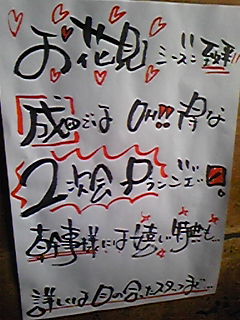 お花見シーズン到来!!
「成田では OH!! 得な
2次会プランがございます。
幹事様には嬉しい特典も…
詳しくは目の合ったスタッフまで…